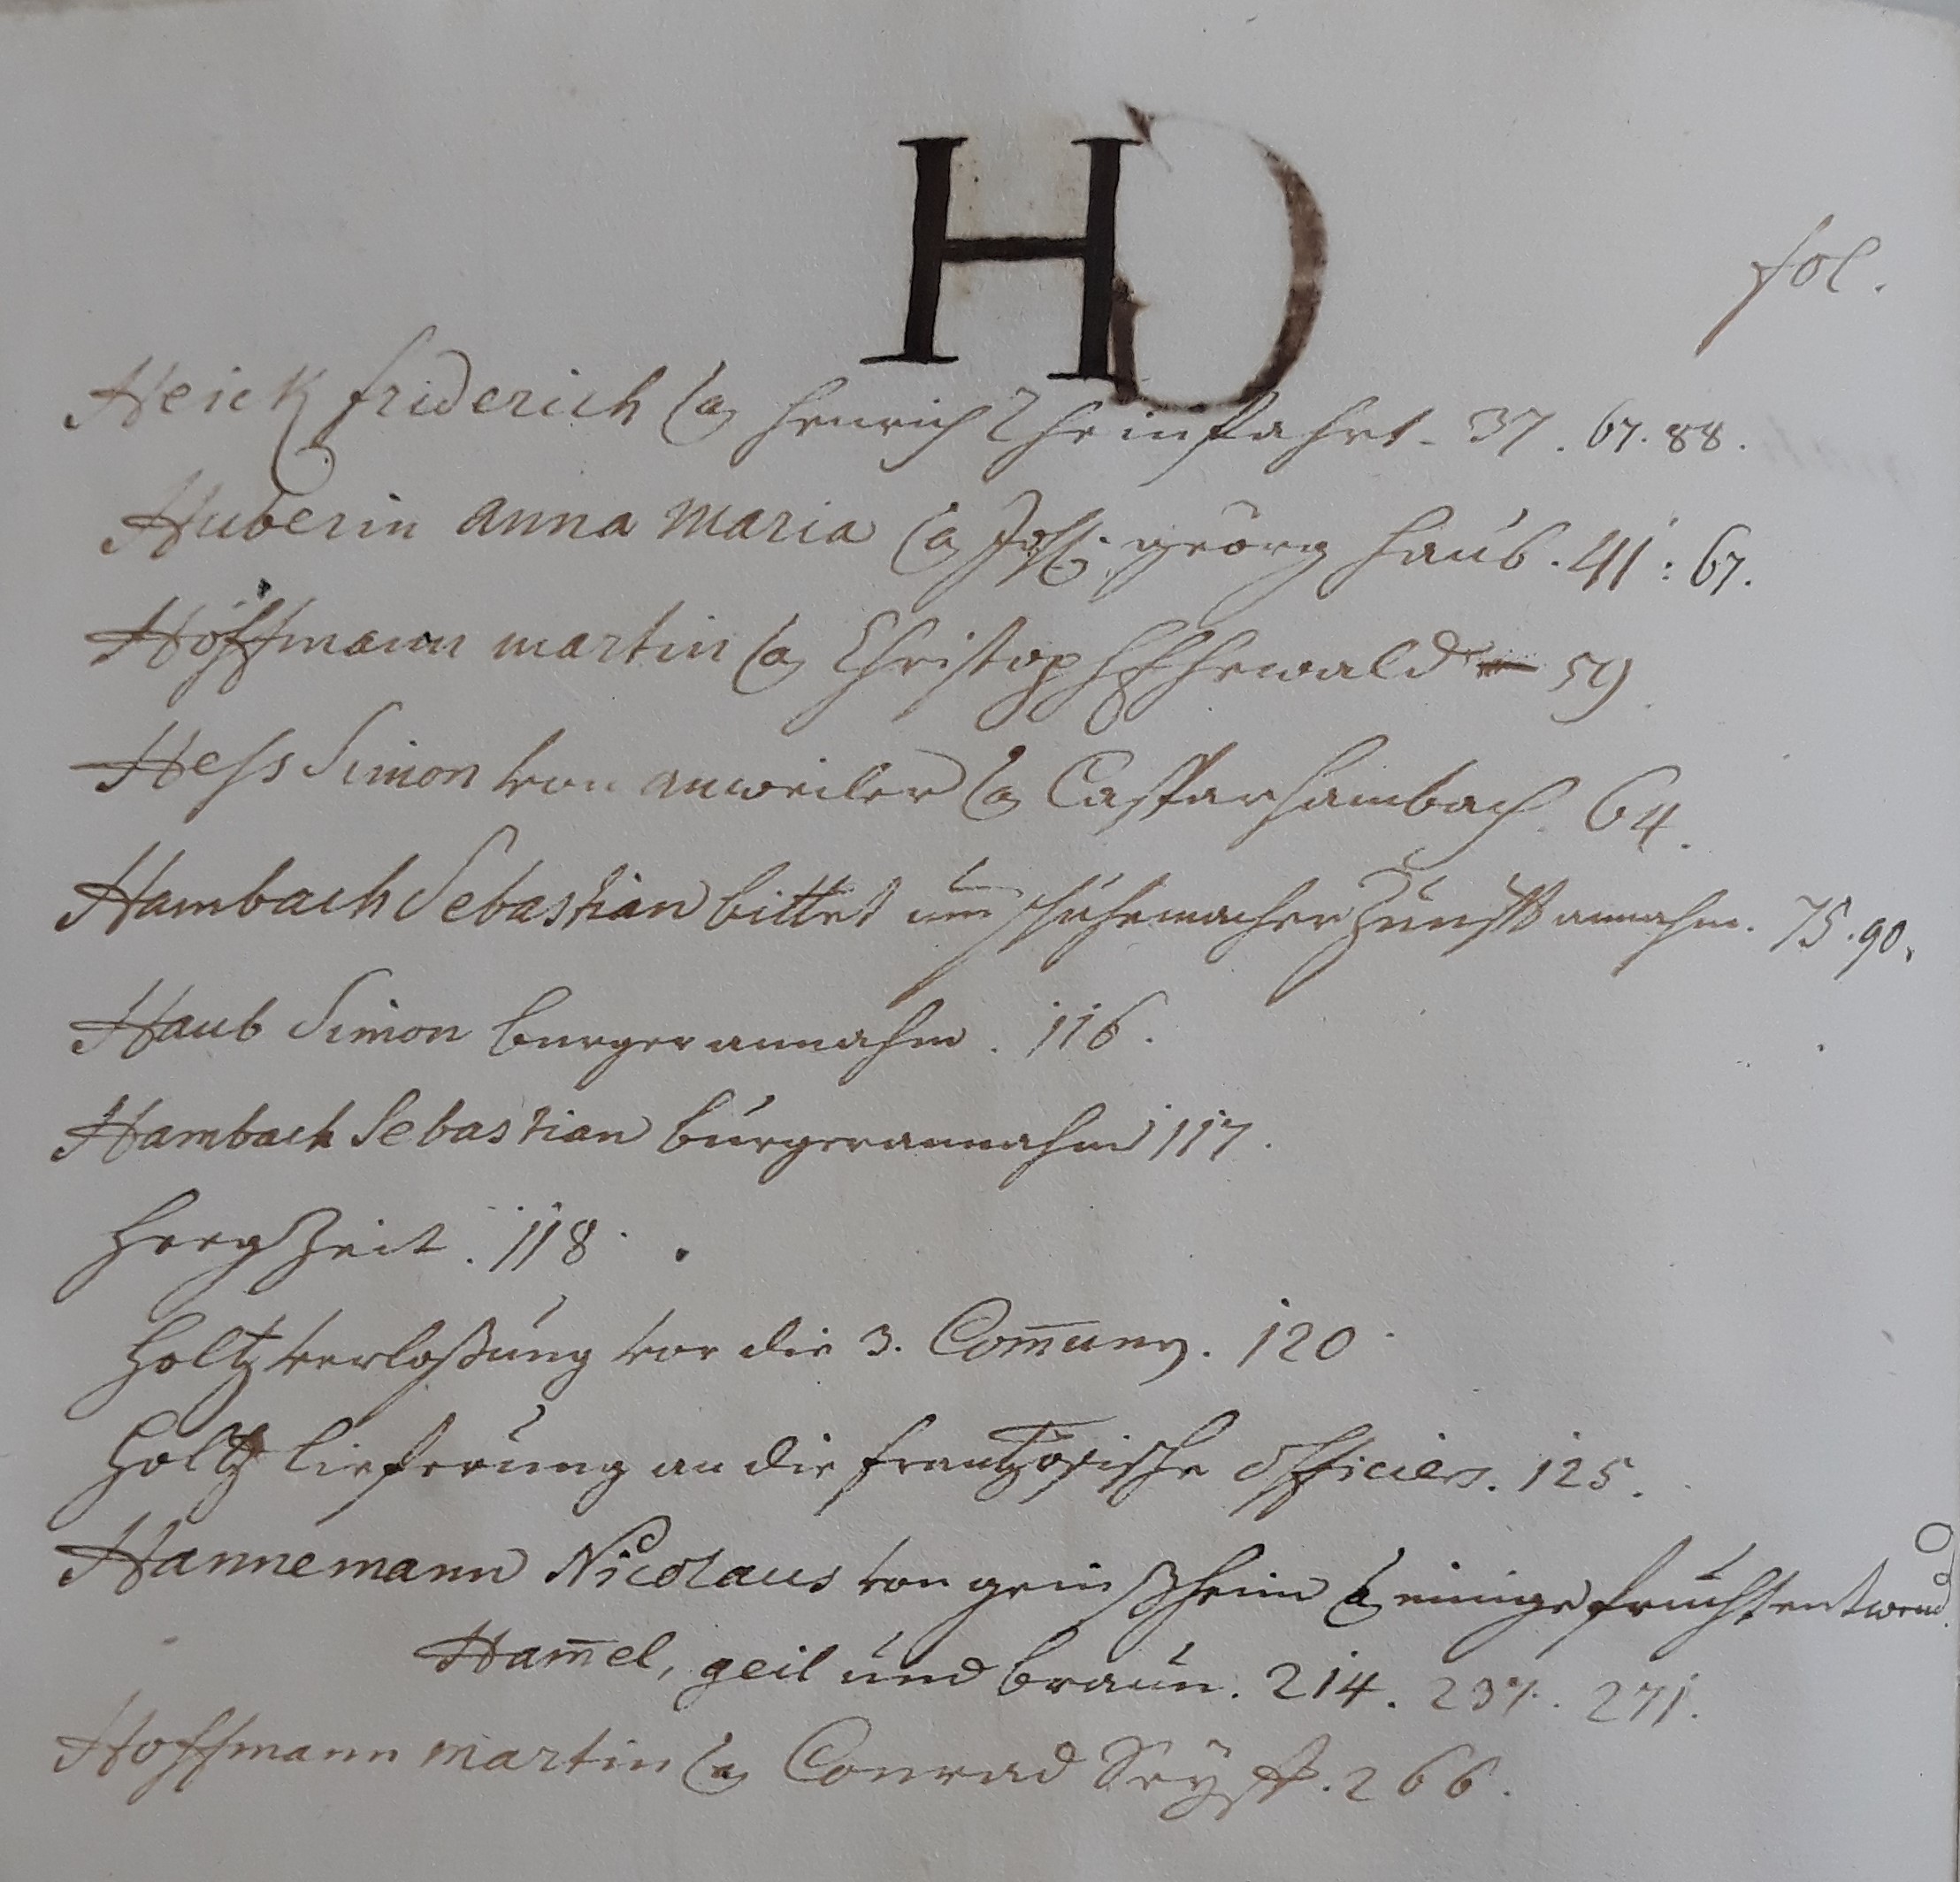 H
fol.
Heick friderich Ca henrich Rheinfahrt - 37 . 67 . 88 .
Huberin anna Maria Ca Joh: georg haub . 41 : 67 .
Hoffmann martin Ca Christoph Ehewald 59
Hess Simon von anweiler Ca Caspar hambach . 64 .
Hambach Sebastian bittet um schuhemacher Zunfft annahm . 75 . 90 .
Haub Simon burger annahm . 116 .
Hambach Sebastian burgerannahm 117 .
118 .
holtz verloßung vor die 3. Com̄uny . 120
holtz lieferung an die frantzösische officiers . 125 .
Hannemann Nicolaus von geinßheim Ca einige fruchtentwend
Ham̄el , geil und braun . 214 . 237 . 271 .
Hoffmann martin Ca Conrad Seyff . 266 .